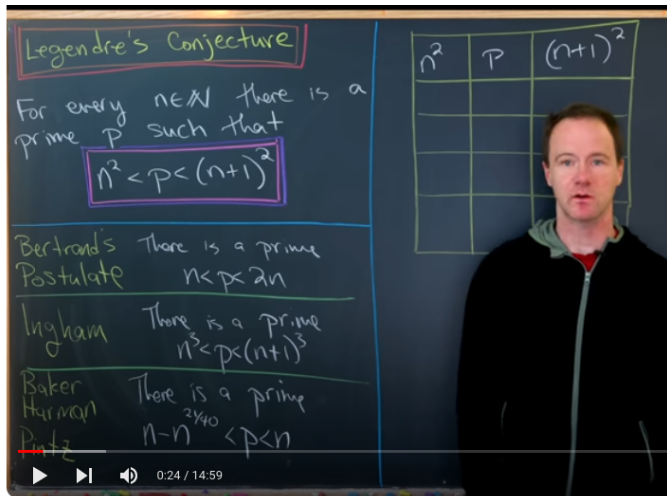 Legendre's Conjecture
For every n∈ℕ there is a
prime p such that
n² < p < (n+1)²
Bertrand's
Postulate
There is a prime
n < p < 2n
Ingham
There is a prime
n³ < p < (n+1)³
Baker
Harman
Pintz
There is a prime
n - n^21/40 < p < n
n² p (n+1)²
0:24 / 14:59